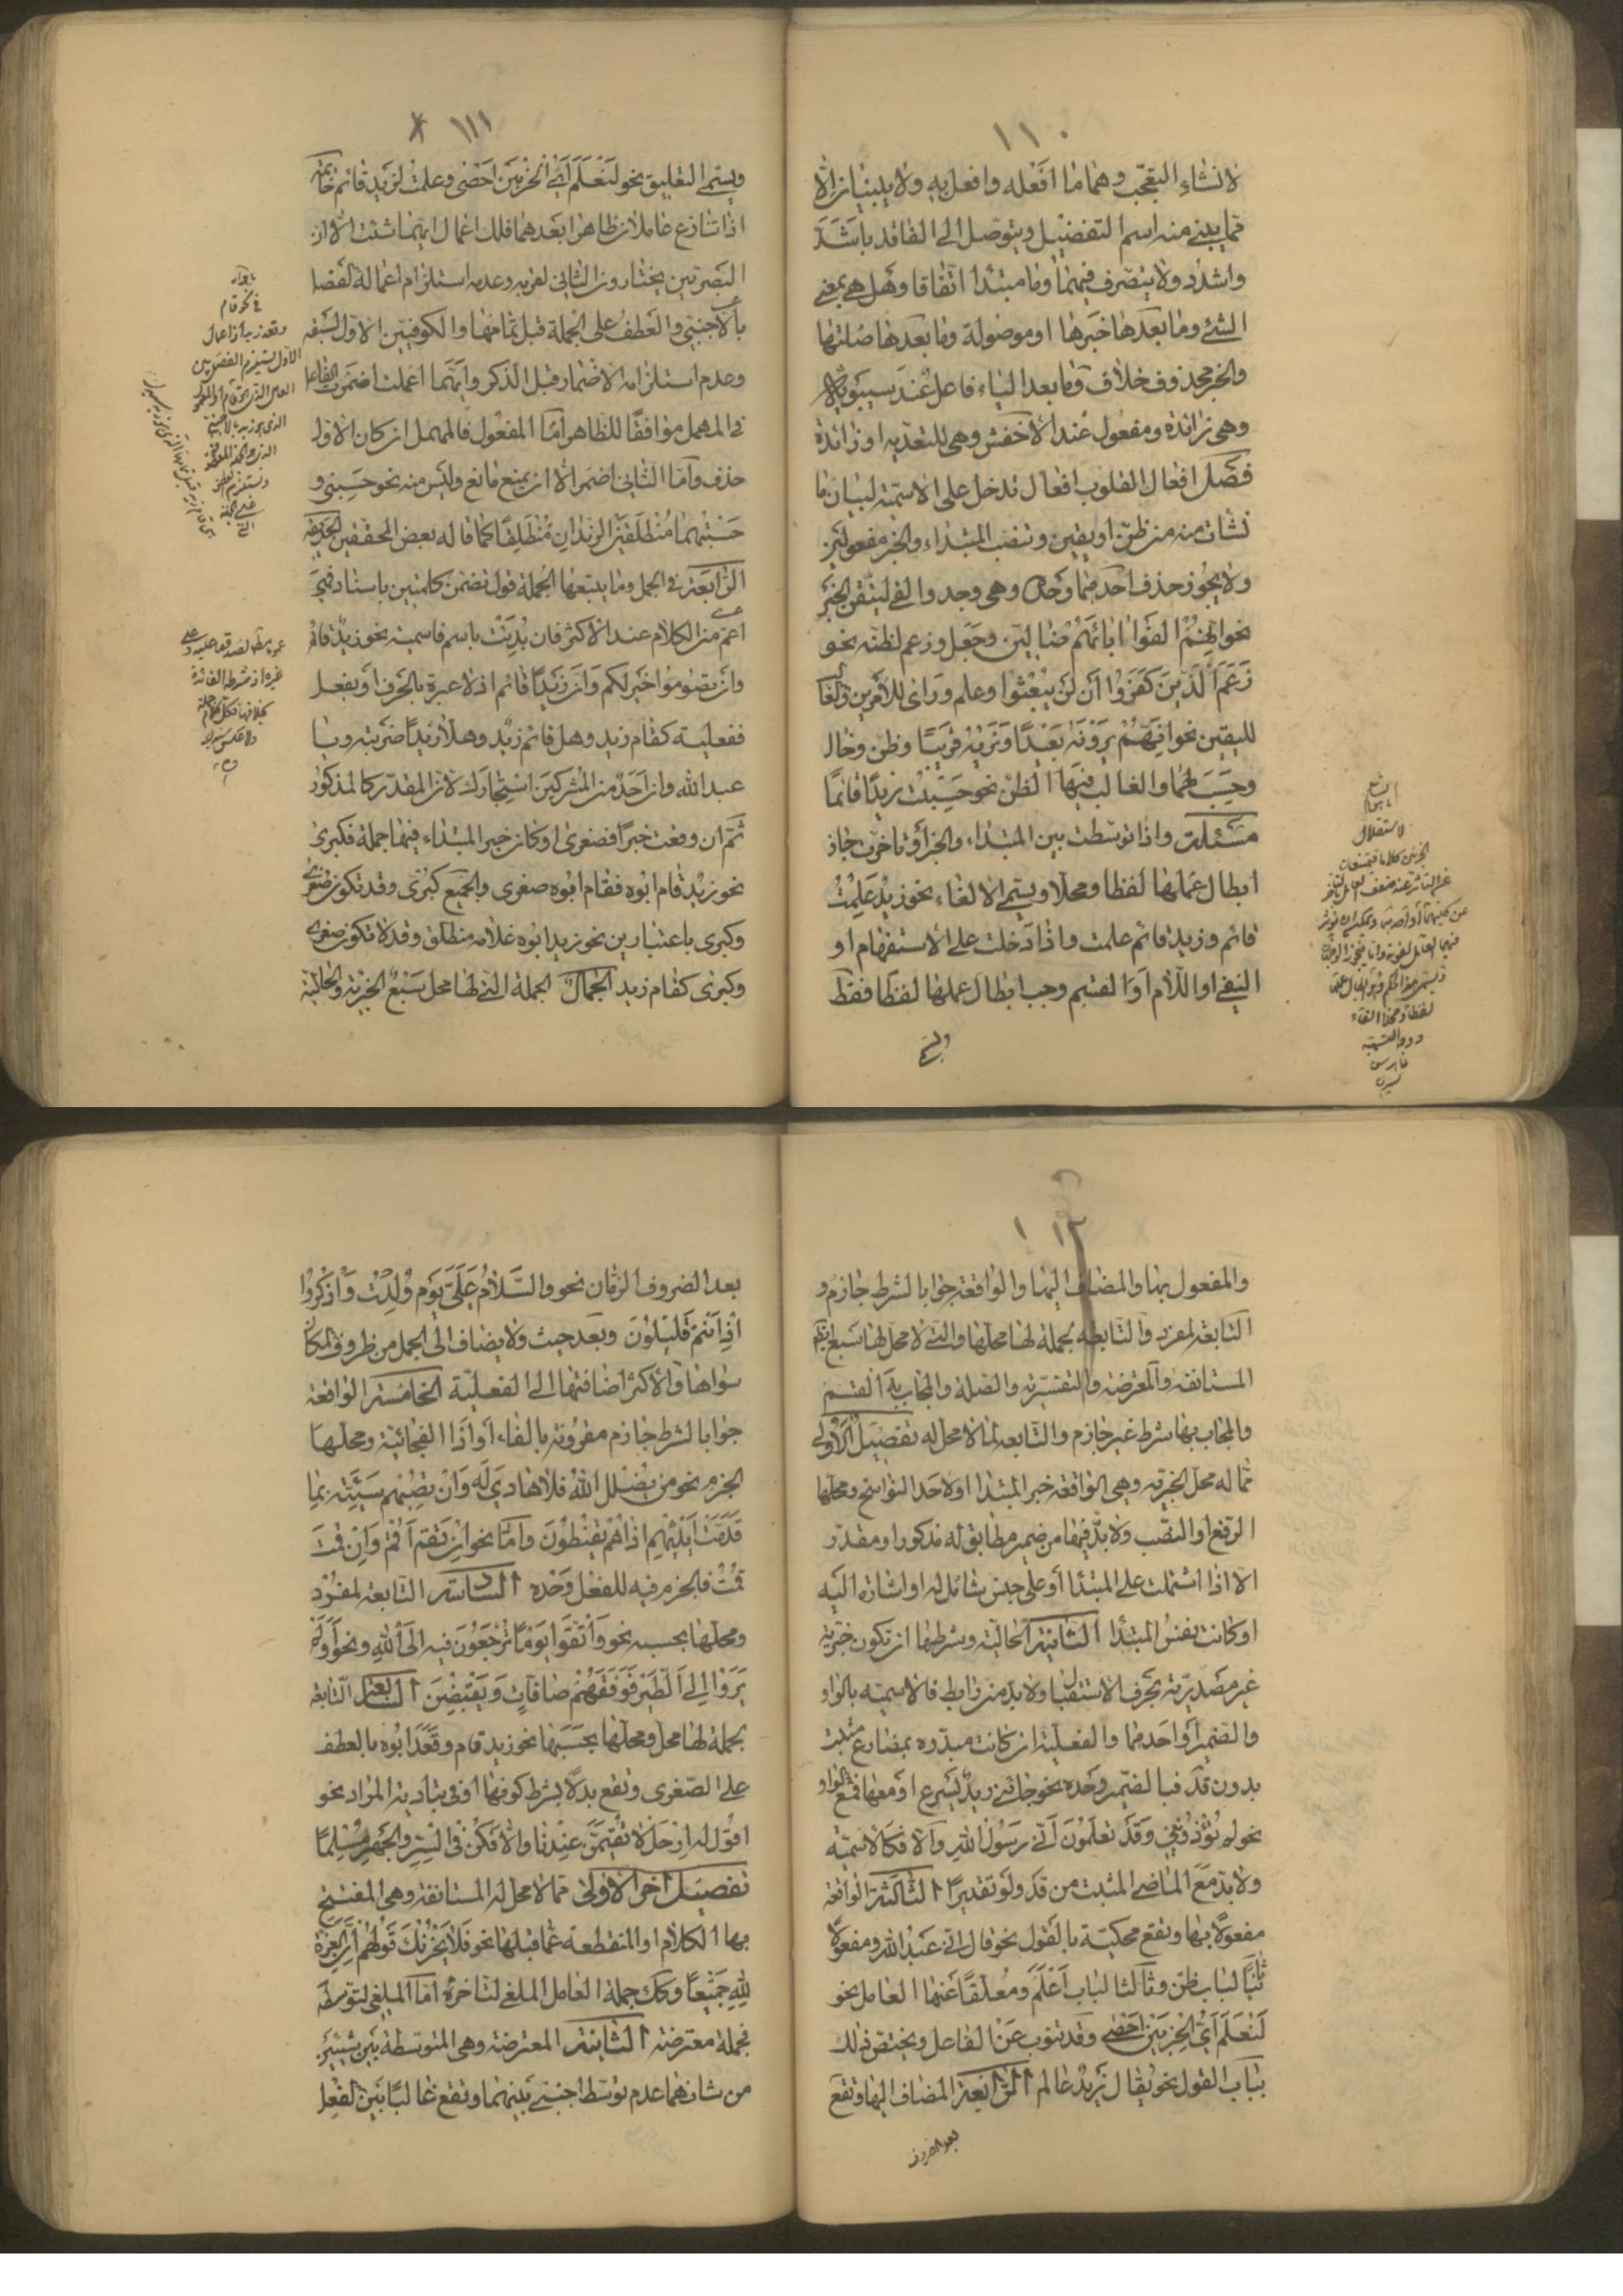 ١١٠
لانشاء التعجّب وهما ما افعله وافعل به ولا يبنيان الّا
ممّا يبنى منه اسم التفضيل ويتوصّل الى الفاقد باشدّ
واشدد ولا يتصرف فيهما وما مبتدا اتّفاقا وهل هى بمعنى
الشئ وما بعدها خبرها او موصولة وما بعدها صلتها
والخبر محذوف خلاف وما بعد الباء فاعل عند سيبويه
وهى زائدة ومفعول عند الاخفش وهى للتعديه او زائدة
فصل افعال القلوب افعال تدخل على الاسمية لبيان ما
نشات منه من ظنّ او يقين وتنصب المبتداء والخبر مفعولين
ولا يجوز حذف احدهما وحده وهى وجد والفى لتيقن الخبر
نحو انهم الفوا ابائهم ضالين وجعل وزعم لظنه نحو
زعم الذين كفروا ان لن يبعثوا وعلم وراى للأمرين والغالب
لليقين نحو انهم يرونه بعيدا ونريه قريبا وظن وخال
وحسب لهما والغالب فيها الظن نحو حسبت زيدا قائما
مسئلة واذا توسّطت بين المبتداء والخبر او تاخرت جاز
ابطال عملها لفظا ومحلا ويسمى الالغاء نحو زيد علمت
قائم وزيد قائم علمت واذا دخلت على الاستفهام او
النفى او اللام او القسم وجب ابطال عملها لفظا فقط
١١١
ويسمى التعليق نحو لنعلم اى الحزبين احصى وعلمت لزيد قائم خاتمة
اذا تنازع عاملان ظاهرا بعدهما فلك اعمال ايهما شئت الا ان
البصريين يختارون الثانى لقربه وعدم استلزام اعماله الفصل
بالاجنبى والعطف على الجملة قبل تمامها والكوفيين الاول لسبقه
وعدم استلزامه الاضمار قبل الذكر وايهما اعملت اضمرت الفاعل
فى المهمل موافقا للظاهر اما المفعول فالمهمل ان كان الاول
حذف واما الثانى اضمر الا ان يمنع مانع وليس منه نحو حسبنى و
حسبتهما منطلقين الزيدان منطلقا كما قاله بعض المحققين الحديقة
الرابعة فى الجمل وما يتبعها الجملة قول تضمن كلمتين باسناد فهى
اعم من الكلام عند الاكثر فان بدئت باسم فاسمية نحو زيد قائم
وان تصوموا خير لكم وان زيدا قائم اذ لا عبرة بالحرف او بفعل
ففعلية كقام زيد وهل قائم زيد وهلا زيدا ضربته ويا
عبد الله وان احد من المشركين استجارك لان المقدر كالمذكور
ثم ان وقعت خبرا فصغرى او كان خبر المبتداء فيها جملة فكبرى
نحو زيد قام ابوه فقام ابوه صغرى والجميع كبرى وقد تكون صغرى
وكبرى باعتبارين نحو زيد ابوه غلامه منطلق وقد لا تكون صغرى
وكبرى كقام زيد اجمال الجملة التى لها محل سبع الخبرية والحالية
١١٢
والمفعول بها والمضاف اليها والواقعة جوابا لشرط جازم و
التابعة لمفرد والتابعة لجملة لها محلها والتى لا محل لها سبع ايضا
المستانفه والمعترضه والتفسيرية والصلة والمجاب بها القسم
والمجاب بها شرط غير جازم والتابعه لما لا محل له تفصيل الاولى
مما له محل الخبرية وهى الواقعة خبر المبتدا او لاحد النواسخ ومحلها
الرفع او النصب ولا بد فيها من ضمير مطابق له مذكور او مقدر
الا اذا اشتملت على المبتدا او على جنس شامل له او اشارة اليه
او كانت نفس المبتدا الثانية الحالية وشرطها ان تكون خبرية
غير مصدرة بحرف الاستقبال ولا بد من رابط فالاسمية بالواو
والضمير او احدهما والفعلية ان كانت مبدوه بمضارع مثبت
بدون قد فبالضمير وحده نحو جائنى زيد يسرع او معها فمع الواو
نحو لم تؤذوننى وقد تعلمون انى رسول الله والا فكالاسمية
ولا بد مع الماضى المثبت من قد ولو تقديرا الثالثة الواقعة
مفعولا بها وتقع محكية بالقول نحو قال انى عبد الله ومفعولا
ثانيا لباب ظن وثالثا لباب اعلم ومعلقا عنها العامل نحو
لنعلم اى الحزبين احصى وقد تنوب عن الفاعل ويختص ذلك
بباب القول نحو يقال زيد عالم الرابعة المضاف اليها وتقع
بعد الضروف
بعد الضروف الزمان نحو والسلام على يوم ولدت واذكروا
اذ انتم قليلون وبعد حيث ولا يضاف الى الجمل من ظروف المكان
سواها والاكثر اضافتها الى الفعلية الخامسة الواقعة
جوابا لشرط جازم مقرونه بالفاء او اذا الفجائية ومحلها
الجزم نحو من يضلل الله فلا هادى له وان تصبهم سيئة بما
قدمت ايديهم اذا هم يقنطون واما نحو ان تقم اقم وان قمت
قمت فالجزم فيه للفعل وحده السادسة التابعة لمفرد
ومحلها بحسبه نحو واتقوا يوما ترجعون فيه الى الله ونحو اولم
يروا الى الطير فوقهم صافات ويقبضن السابعة التابعة
بجملة لها محل ومحلها بحسبها نحو زيد قام وقعد ابوه بالعطف
على الصغرى وتقع بدلا بشرط كونها اوفى بتادية المراد نحو
اقول له ارحل لا تقيمن عندنا والا فكن فى السر والجهر مسلما
تفصيل اخر الاولى مما لا محل له المستانفة وهى المفتتح
بها الكلام او المنقطعه عما قبلها نحو فلا يحزنك قولهم ان العزة
لله جميعا وكك جملة العامل الملغى لتاخره اما الملغى لتوسطه
فجملة معترضة الثانية المعترضة وهى المتوسطة بين شيئين
من شانهما عدم توسط اجنبى بينهما وتقع غالبا بين الفعل